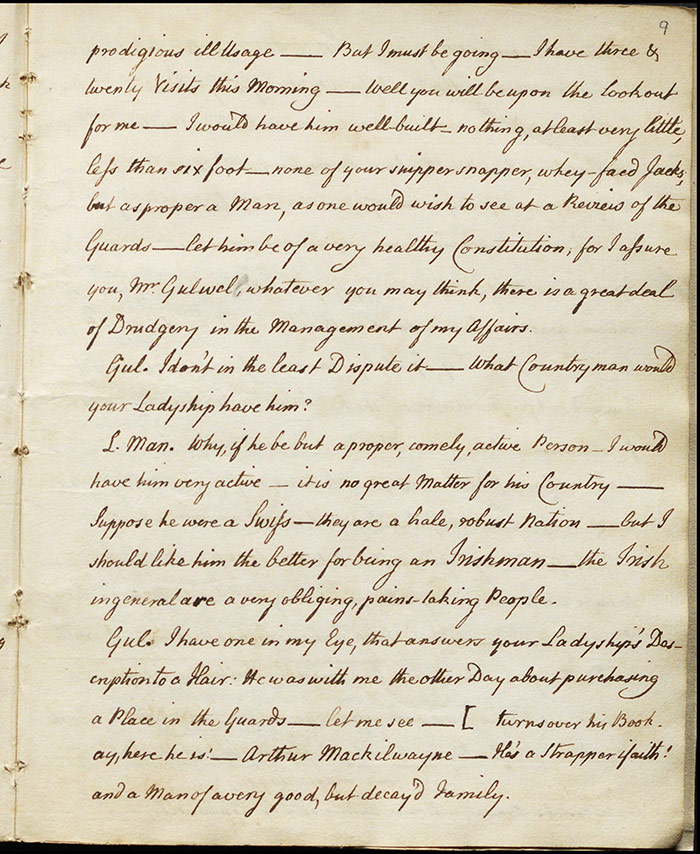 9
prodigious ill Usage — But I must be going — I have three &
twenty Visits this Morning — Well you will be upon the look out
for me — I would have him well-built – nothing, at least very little,
less than six foot – none of your snipper snapper, whey-faed Jacks,
but as proper a Man, as one would wish to see at a Review of the
Guards — let him be of a very healthy Constitution; for I assure
you, Mr. Gulwel, whatever you may think, there is a great deal
of Drudgery in the Management of my Affairs.
Gul. I don't in the least Dispute it — What Countryman would
your Ladyship have him?
L. Man. Why, if he be but a proper, comely, active Person – I would
have him very active – it is no great Matter for his Country —
Suppose he were a Swiss – they are a hale, robust Nation — but I
should like him the better for being an Irishman — the Irish
in general are a very obliging, pains-taking People.
Gul. I have one in my Eye, that answers your Ladyship's Des-
cription to a Hair: He was with me the other Day about purchasing
a Place in the Guards — let me see — [ turns over his Book.
ay, here he is! — Arthur Mackilwayne — He's a Strapper i'faith!
and a Man of a very good, but decay'd Family.